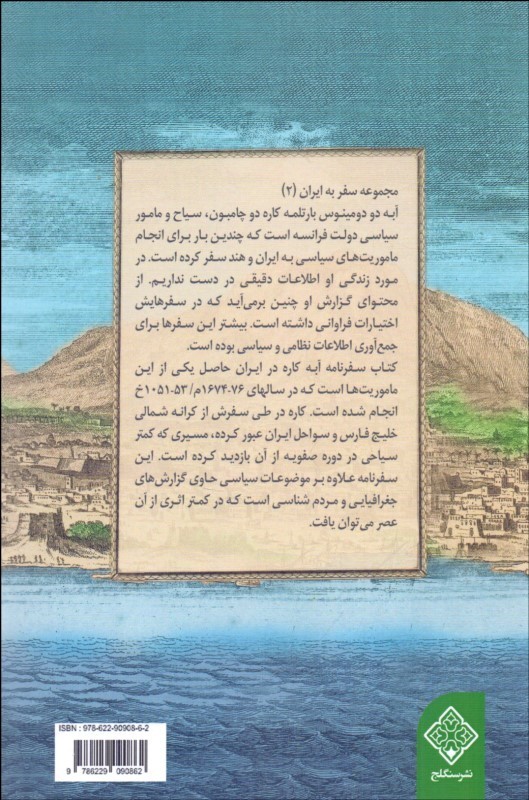 مجموعه سفر به ایران (۲)
آبه دو دومینوس بارتلمه کاره دو چامبون، سیاح و مامور
سیاسی دولت فرانسه است که چندین بار برای انجام
ماموریت‌های سیاسی به ایران و هند سفر کرده است. در
مورد زندگی او اطلاعات دقیقی در دست نداریم. از
محتوای گزارش او چنین برمی‌آید که در سفرهایش
اختیارات فراوانی داشته است. بیشتر این سفرها برای
جمع‌آوری اطلاعات نظامی و سیاسی بوده است.
کتاب سفرنامه آبه کاره در ایران حاصل یکی از این
ماموریت‌ها است که در سالهای ۷۶-۱۶۷۴م/ ۵۳-۱۰۵۱خ
انجام شده است. کاره در طی سفرش از کرانه شمالی
خلیج فارس و سواحل ایران عبور کرده، مسیری که کمتر
سیاحی در دوره صفویه از آن بازدید کرده است. این
سفرنامه علاوه بر موضوعات سیاسی حاوی گزارش‌های
جغرافیایی و مردم شناسی است که در کمتر اثری از آن
عصر می‌توان یافت.
ISBN : 978-622-90908-6-2
9 786229 090862
نشر سنگلج